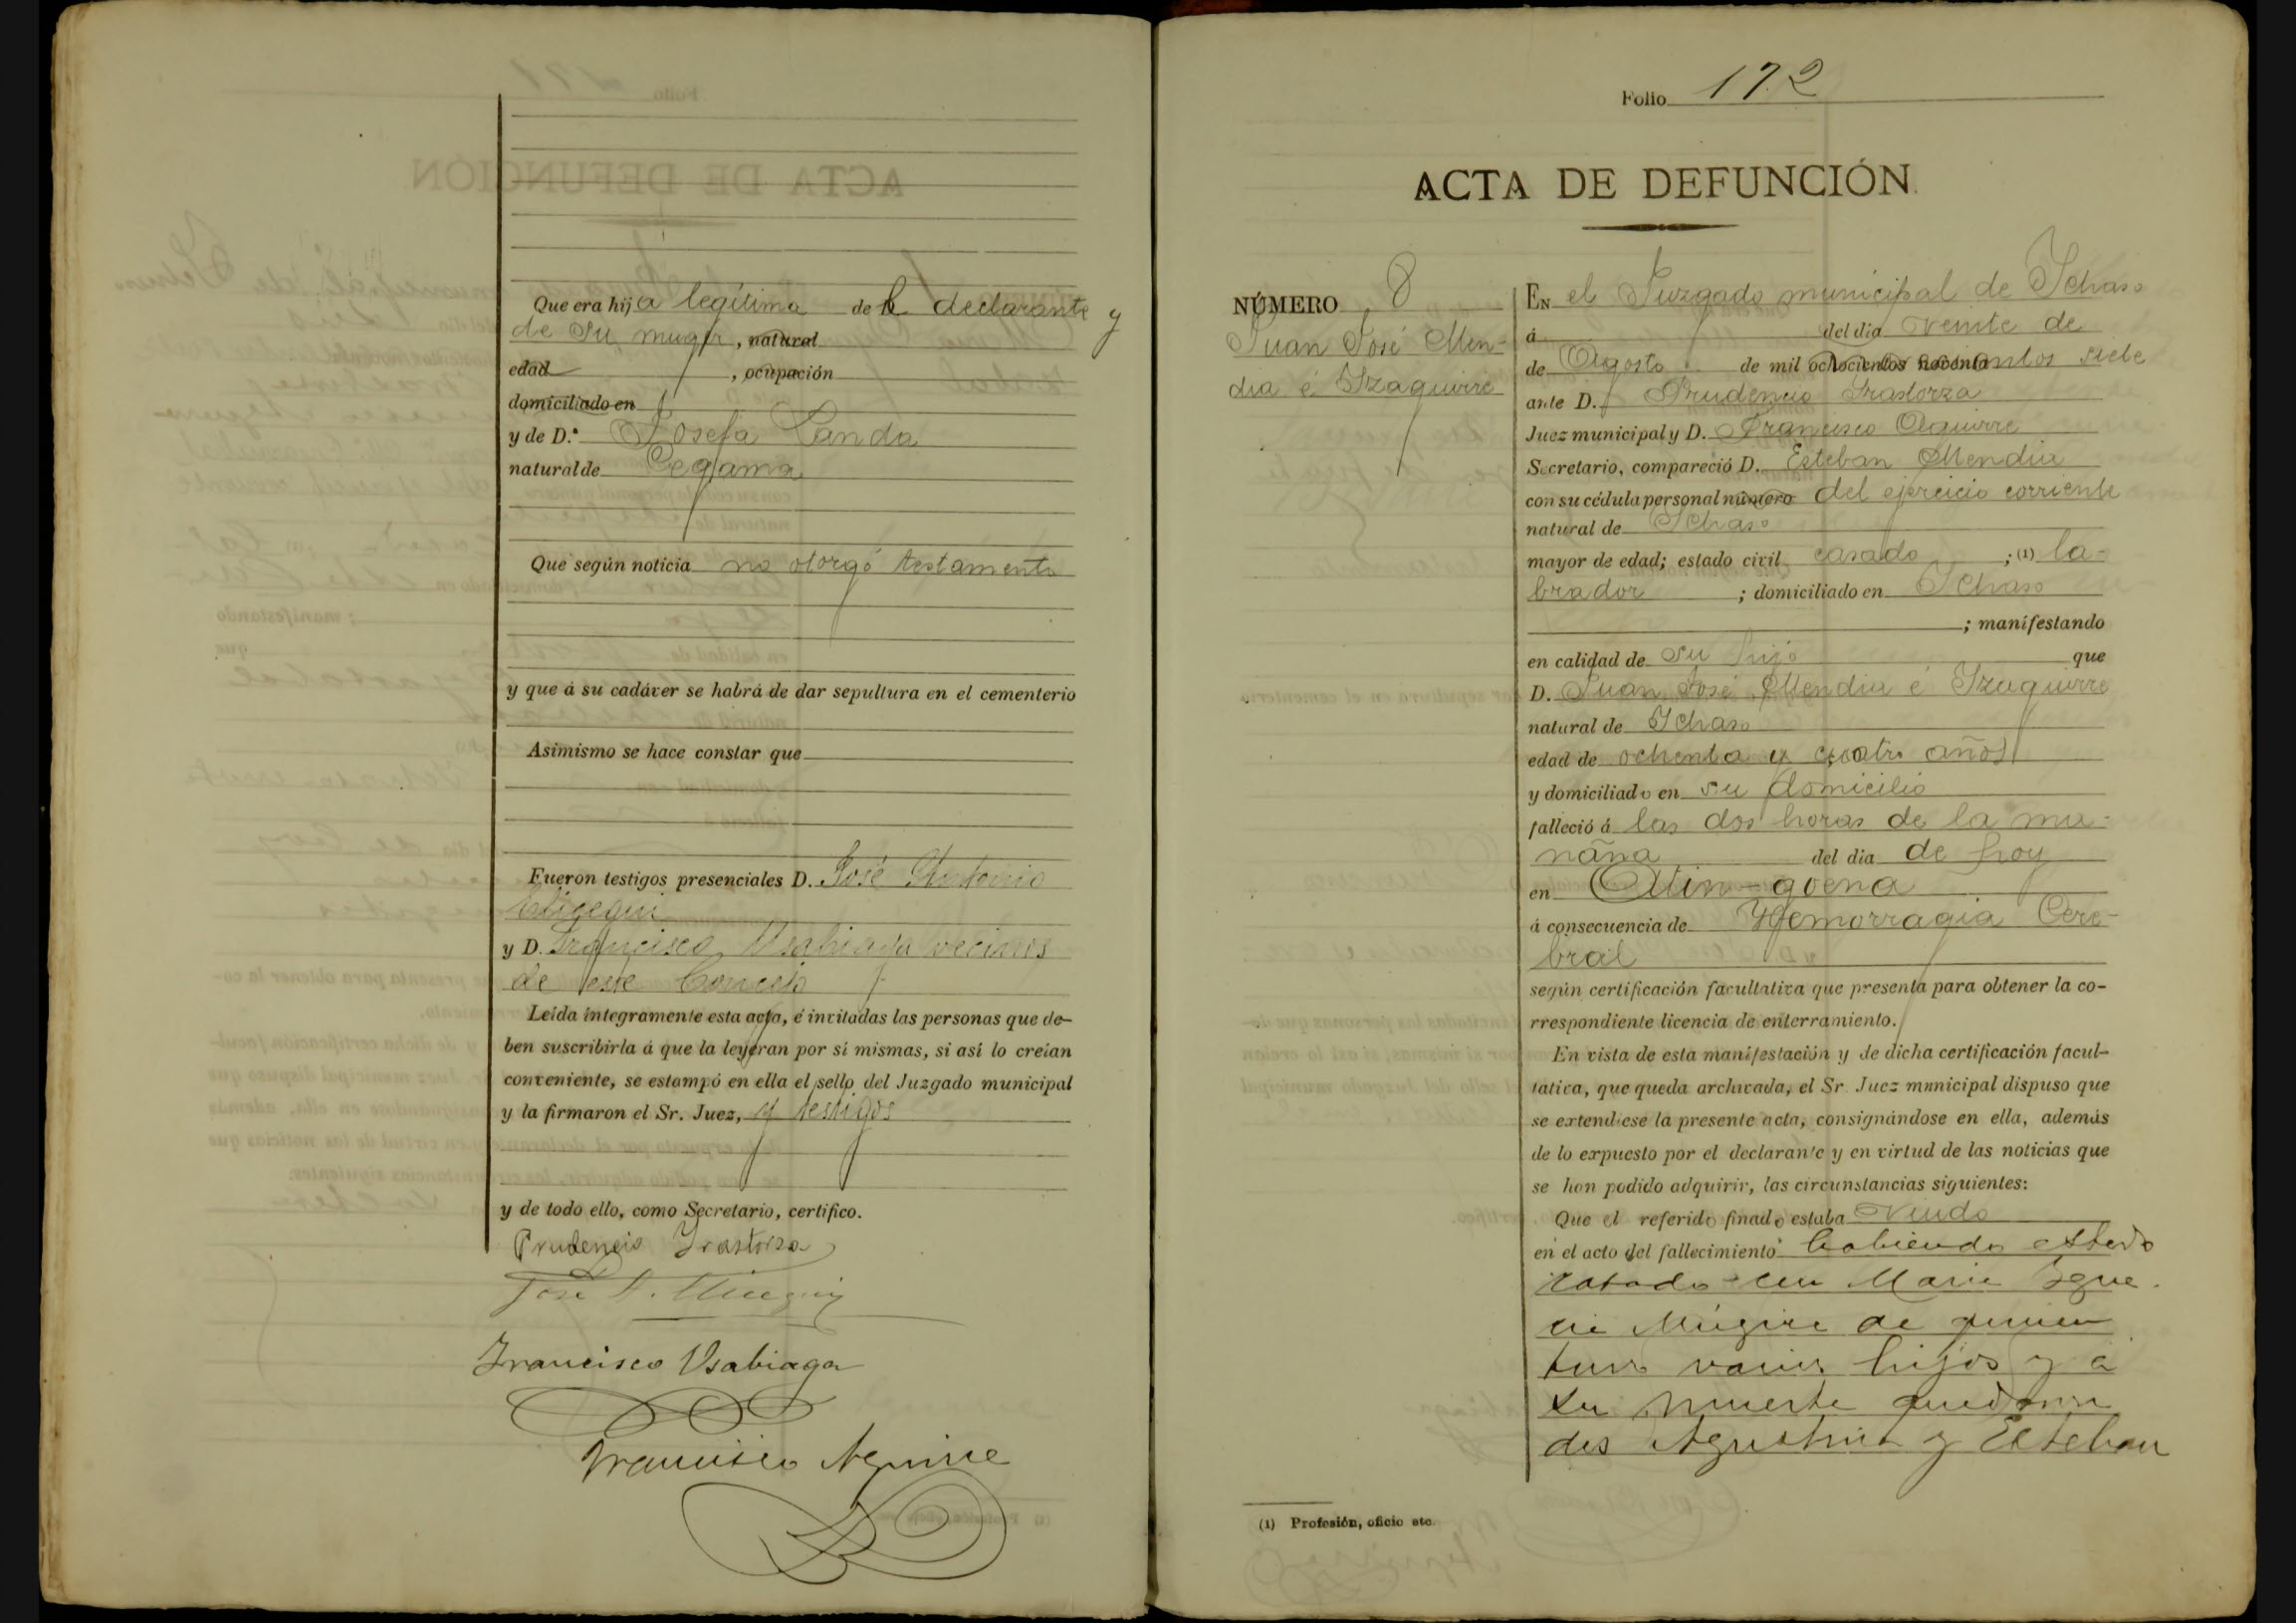 Que era hija legítima de l declarante y
de su muger, natural
edad , ocupación
domiciliado en
y de D.ª Josefa Landa
natural de Cegama
Que según noticia no otorgó testamento
y que á su cadáver se habrá de dar sepultura en el cementerio
Asimismo se hace constar que
Fueron testigos presenciales D. José Antonio
y D. Francisco Usabiaga vecinos
de este Concejo
Leída íntegramente esta acta, é invitadas las personas que de-
ben suscribirla á que la leyeran por sí mismas, si así lo creían
conveniente, se estampó en ella el sello del Juzgado municipal
y la firmaron el Sr. Juez, y testigos
y de todo ello, como Secretario, certifico.
Prudencio Irastorza
José A.
Francisco Usabiaga
Francisco Aguirre
Folio 172
ACTA DE DEFUNCIÓN.
NÚMERO 8
Juan José Men-
dia é Izaguirre
EN el Juzgado municipal de Ichaso
á del dia veinte de
de Agosto de mil ochocientos noventa siete
ante D. Prudencio Irastorza
Juez municipal y D. Francisco Aguirre
Secretario, compareció D. Esteban Mendia
con su cédula personal número del ejercicio corriente
natural de Ichaso
mayor de edad; estado civil casado ; (1) la-
brador ; domiciliado en Ichaso
; manifestando
en calidad de su hijo que
D. Juan José Mendia é Izaguirre
natural de Ichaso
edad de ochenta y cuatro años
y domiciliado en su domicilio
falleció á las dos horas de la ma-
ñana del dia de hoy
en
á consecuencia de Hemorragia Cere-
bral
según certificación facultativa que presenta para obtener la co-
rrespondiente licencia de enterramiento.
En vista de esta manifestación y de dicha certificación facul-
tativa, que queda archivada, el Sr. Juez municipal dispuso que
se extendiese la presente acta, consignándose en ella, además
de lo expuesto por el declarante y en virtud de las noticias que
se han podido adquirir, las circunstancias siguientes:
Que el referido finado estaba Viudo
en el acto del fallecimiento habiendo estado
casado con Maria Igna-
cia Múgica de quien
tuvo varios hijos y á
su muerte quedaron
dos Agustina y Esteban
(1) Profesión, oficio etc.